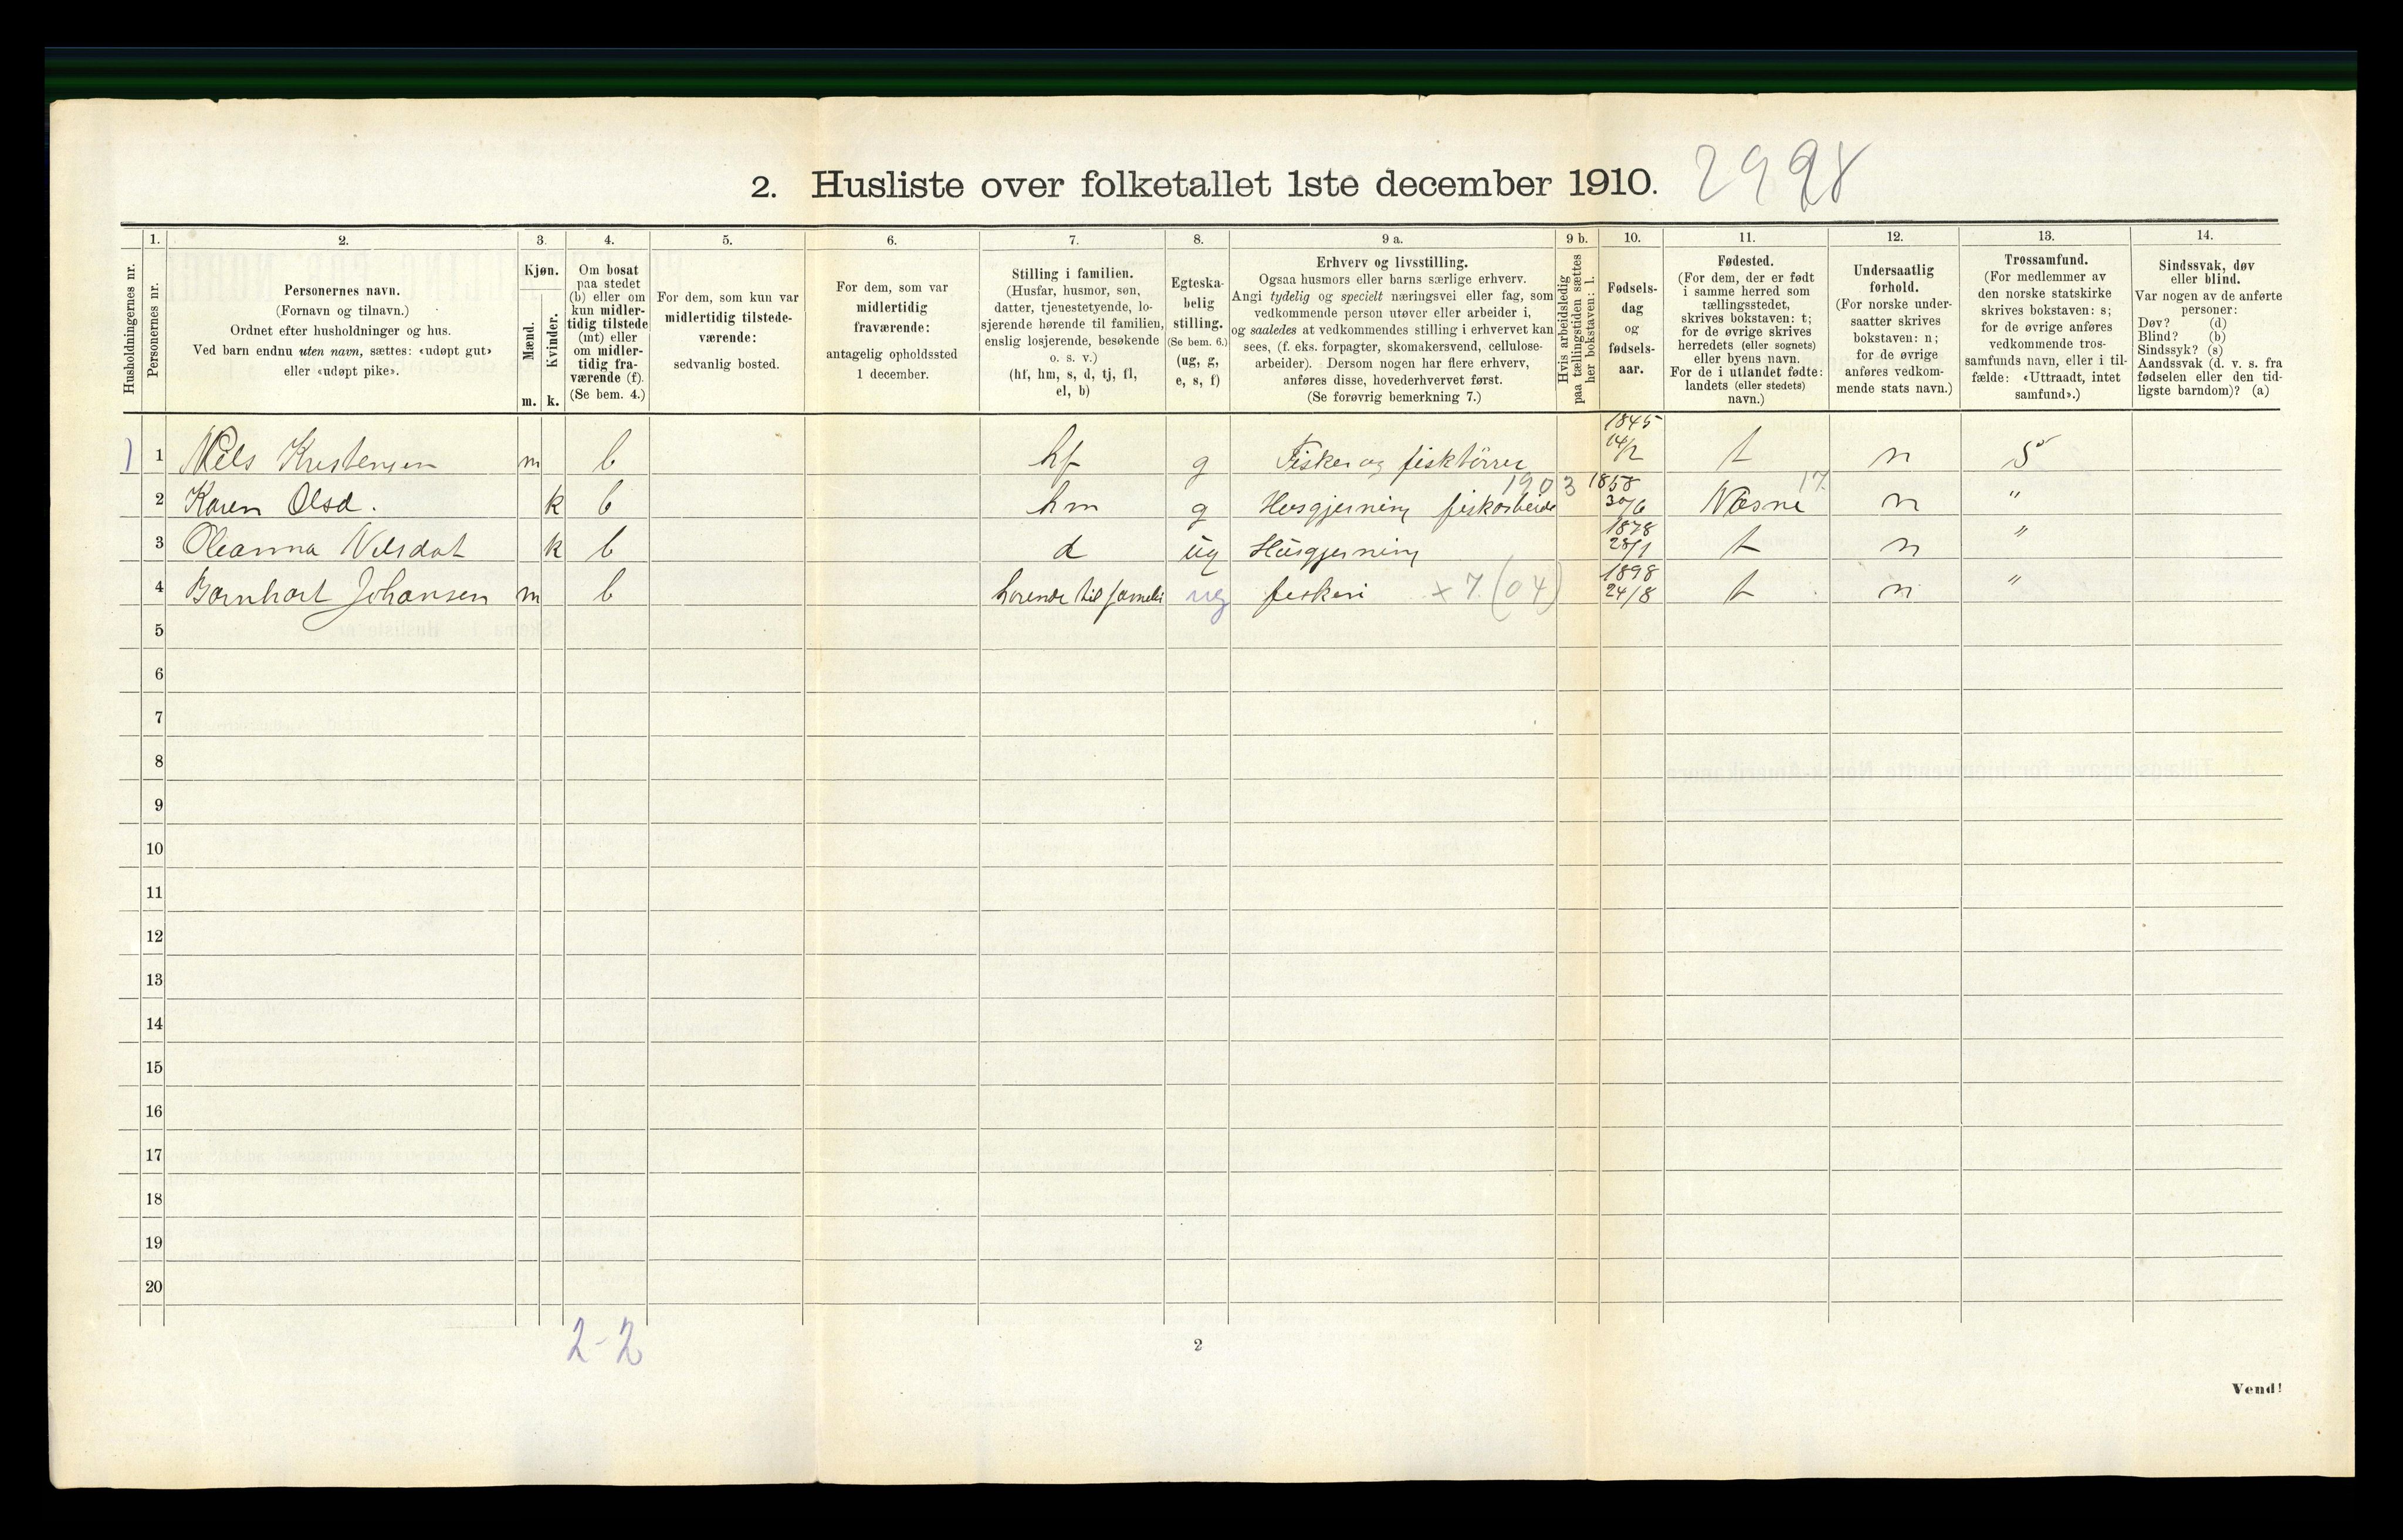 2. Husliste over folketallet 1ste december 1910. 2998
Husholdningernes nr.
1.
Personernes nr.
2.
Personernes navn.
(Fornavn og tilnavn.)
Ordnet efter husholdninger og hus.
Ved barn endnu uten navn, sættes: «udøpt gut»
eller «udøpt pike».
3.
Kjøn.
Mænd.
Kvinder.
m. k.
4.
Om bosat
paa stedet
(b) eller om
kun midler-
tidig tilstede
(mt) eller
om midler-
tidig fra-
værende (f).
(Se bem. 4.)
5.
For dem, som kun var
midlertidig tilstede-
værende:
sedvanlig bosted.
6.
For dem, som var
midlertidig
fraværende:
antagelig opholdssted
1 december.
7.
Stilling i familien.
(Husfar, husmor, søn,
datter, tjenestetyende, lo-
sjerende hørende til familien,
enslig losjerende, besøkende
o. s. v.)
(hf, hm, s, d, tj, fl,
el, b)
8.
Egteska-
belig
stilling.
(Se bem. 6.)
(ug, g,
e, s, f)
9 a.
Erhverv og livsstilling.
Ogsaa husmors eller barns særlige erhverv.
Angi tydelig og specielt næringsvei eller fag, som
vedkommende person utøver eller arbeider i,
og saaledes at vedkommendes stilling i erhvervet kan
sees, (f. eks. forpagter, skomakersvend, cellulose-
arbeider). Dersom nogen har flere erhverv,
anføres disse, hovederhvervet først.
(Se forøvrig bemerkning 7.)
9 b.
Hvis arbeidsledig
paa tællingstiden sættes
her bokstaven: l.
10.
Fødsels-
dag
og
fødsels-
aar.
11.
Fødested.
(For dem, der er født
i samme herred som
tællingsstedet,
skrives bokstaven: t;
for de øvrige skrives
herredets (eller sognets)
eller byens navn.
For de i utlandet fødte:
landets (eller stedets)
navn.)
12.
Undersaatlig
forhold.
(For norske under-
saatter skrives
bokstaven: n;
for de øvrige
anføres vedkom-
mende stats navn.)
13.
Trossamfund.
(For medlemmer av
den norske statskirke
skrives bokstaven: s;
for de øvrige anføres
vedkommende tros-
samfunds navn, eller i til-
fælde: «Uttraadt, intet
samfund».)
14.
Sindssvak, døv
eller blind.
Var nogen av de anførte
personer:
Døv? (d)
Blind? (b)
Sindssyk? (s)
Aandssvak (d. v. s. fra
fødselen eller den tid-
ligste barndom)? (a)
1 1 Nils Kristensen m b hf g Fisker og fisktörrer 1845 14/2 t n s
2 Karen Olsd. k b hm g Husgjerning fiskarbeide 1903 1858 30/6 Næsne 17. n "
3 Oleanna Nilsdat k b d ug Husgjerning 1878 28/1 t n "
4 Barnhart Johansen m b hørende til familie ug fiskeri x 7. (04) 1898 24/8 t n "
5
6
7
8
9
10
11
12
13
14
15
16
17
18
19
20
2-2
2
Vend!